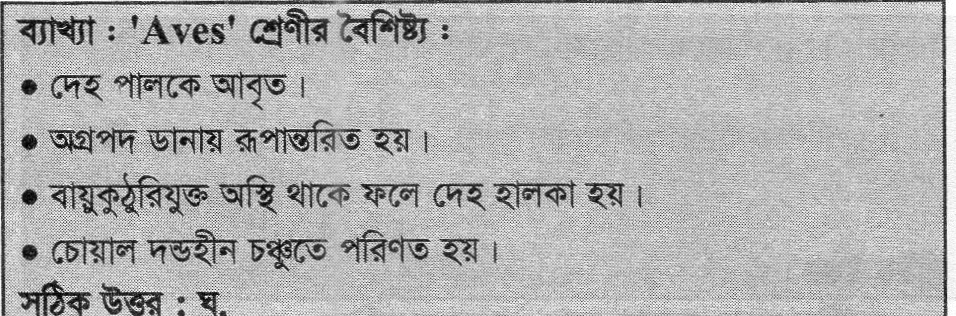 ব্যাখ্যা : 'Aves' শ্রেণীর বৈশিষ্ট্য :
● দেহ পালকে আবৃত।
● অগ্রপদ ডানায় রূপান্তরিত হয়।
● বায়ুকুঠুরিযুক্ত অস্থি থাকে ফলে দেহ হালকা হয়।
● চোয়াল দন্তহীন চঞ্চুতে পরিণত হয়।
সঠিক উত্তর : ঘ.